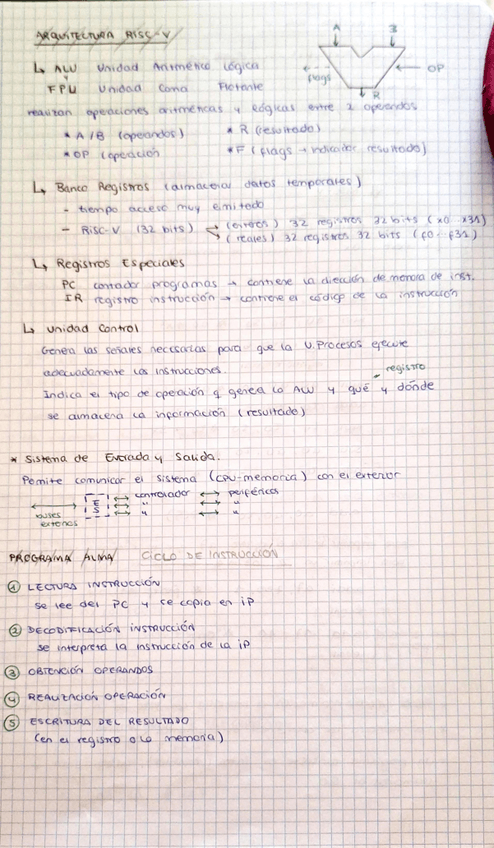 ARQUITECTURA RISC-V
A B
↳ ALU Unidad Aritmético Lógica
y
FPU Unidad Coma Flotante
flags OP
R
realizan operaciones aritméticas y lógicas entre 2 operandos
* A/B (operandos) * R (resultado)
* OP (operación * F (flags → indicador resultado)
↳ Banco Registros (almacena datos temporales)
- tiempo acceso muy limitado
- RISC-V (32 bits) (enteros) 32 registros 32 bits (x0 x31)
(reales) 32 registros 32 bits (f0 - f31)
↳ Registros Especiales
PC contador programas → contiene la dirección de memoria de inst.
IR registro instrucción → contiene el código de la instrucción
↳ Unidad Control
Genera las señales necesarias para que la U. Procesos ejecute
adecuadamente las instrucciones.
registro
Indica el tipo de operación q genera la ALU y qué y dónde
se almacena la información (resultado)
* Sistema de Entrada y Salida.
Permite comunicar el sistema (CPU-memoria) con el exterior
buses externos E/S ↔ controlador ↔ periféricos
↔ " ↔ "
↔ " ↔ "
PROGRAMA ALMA CICLO DE INSTRUCCIÓN
① LECTURA INSTRUCCIÓN
se lee del PC y se copia en IP
② DECODIFICACIÓN INSTRUCCIÓN
se interpreta la instrucción de la IP
③ OBTENCIÓN OPERANDOS
④ REALIZACIÓN OPERACIÓN
⑤ ESCRITURA DEL RESULTADO
(en el registro o la memoria)